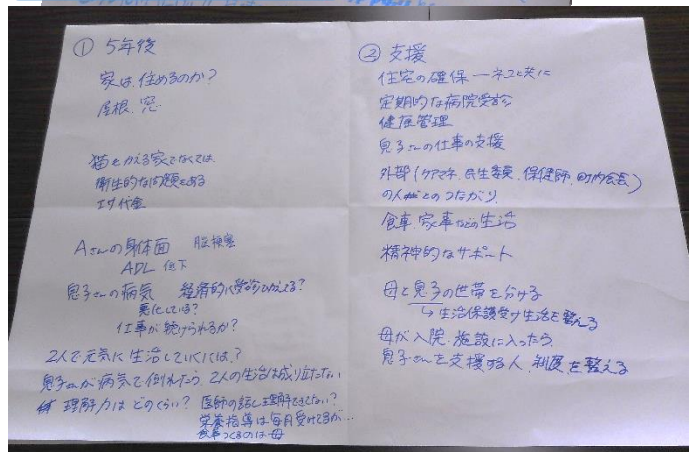 ① 5年後
家は、住めるのか?
屋根、窓
猫をかえる家でなくては、
衛生的な問題もある
エサ代金
Aさんの身体面 脳梗塞
ADL 低下
息子さんの病気 経済的に受診ひかえる?
悪化している?
仕事が続けられるか?
2人で元気に生活していくには、?
息子さんが病気で倒れたら、2人の生活は成り立たない
理解力はどのくらい? 医師の話し理解できてない?
栄養指導は毎月受けてるが…
食事つくるのは母
② 支援
住宅の確保 ーネコと共に
定期的な病院受診
健在管理
息子さんの仕事の支援
外部(ケアマネ、民生委員、保健師、町内会長)
の人とのつながり、
食事、家事などの生活
精神的なサポート
母と息子の世帯を分ける
→生活保護受け生活を整える
母が入院、施設に入ったら、
息子さんを支援する人、制度を整える